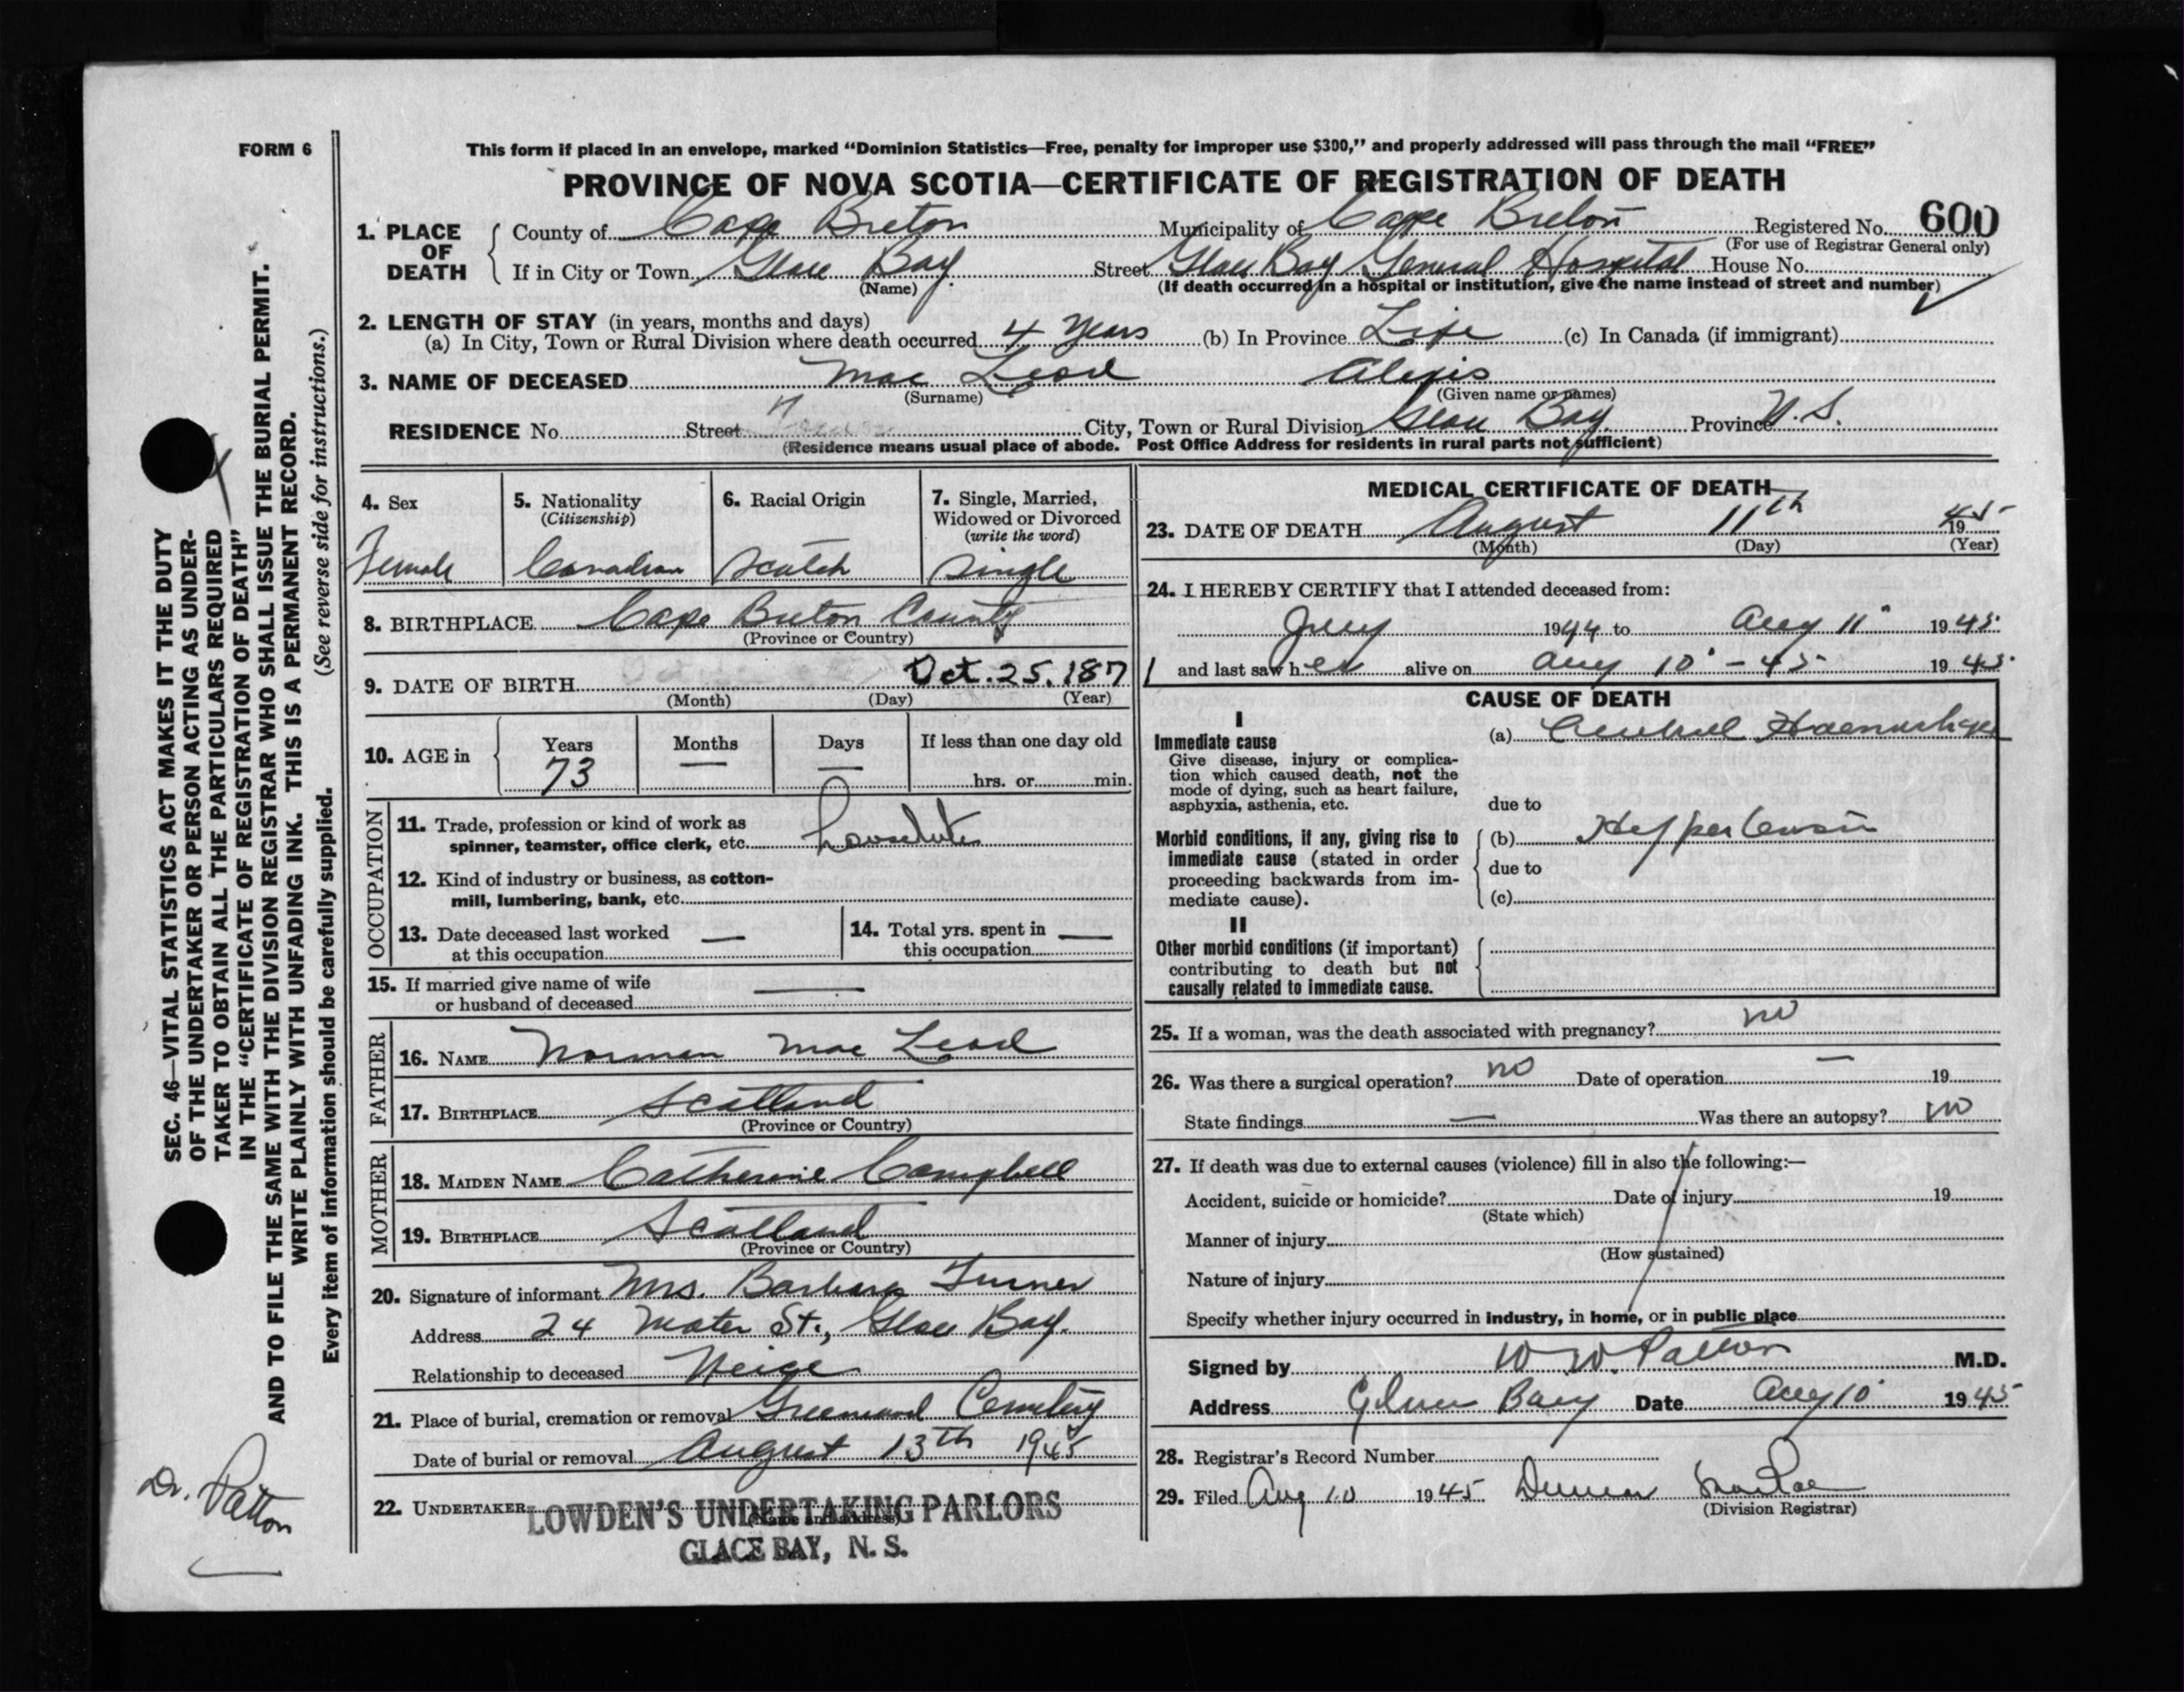 FORM 6
This form if placed in an envelope, marked “Dominion Statistics—Free, penalty for improper use $300,” and properly addressed will pass through the mail “FREE”
PROVINCE OF NOVA SCOTIA—CERTIFICATE OF REGISTRATION OF DEATH
SEC. 46—VITAL STATISTICS ACT MAKES IT THE DUTY
OF THE UNDERTAKER OR PERSON ACTING AS UNDER-
TAKER TO OBTAIN ALL THE PARTICULARS REQUIRED
IN THE “CERTIFICATE OF REGISTRATION OF DEATH”
AND TO FILE THE SAME WITH THE DIVISION REGISTRAR WHO SHALL ISSUE THE BURIAL PERMIT.
WRITE PLAINLY WITH UNFADING INK. THIS IS A PERMANENT RECORD.
Every item of information should be carefully supplied. (See reverse side for instructions.)
Dr. Patton
1. PLACE OF DEATH
County of Cape Breton Municipality of Cape Breton Registered No. 600
(For use of Registrar General only)
If in City or Town Glace Bay Street Glace Bay General Hospital House No.
(Name) (If death occurred in a hospital or institution, give the name instead of street and number)
2. LENGTH OF STAY (in years, months and days)
(a) In City, Town or Rural Division where death occurred 4 years (b) In Province Life (c) In Canada (if immigrant)
3. NAME OF DECEASED Mac Leod Alexis
(Surname) (Given name or names)
RESIDENCE No. Street City, Town or Rural Division Glace Bay Province N.S.
(Residence means usual place of abode. Post Office Address for residents in rural parts not sufficient)
4. Sex 5. Nationality (Citizenship) 6. Racial Origin 7. Single, Married, Widowed or Divorced (write the word)
Female Canadian Scotch Single
8. BIRTHPLACE Cape Breton County
(Province or Country)
9. DATE OF BIRTH Oct. 25. 187
(Month) (Day) (Year)
10. AGE in Years Months Days If less than one day old
73 — — hrs. or min.
OCCUPATION
11. Trade, profession or kind of work as
spinner, teamster, office clerk, etc.
12. Kind of industry or business, as cotton-
mill, lumbering, bank, etc.
13. Date deceased last worked at this occupation — 14. Total yrs. spent in this occupation —
15. If married give name of wife
or husband of deceased —
FATHER
16. NAME Norman Mac Leod
17. BIRTHPLACE Scotland
(Province or Country)
MOTHER
18. MAIDEN NAME Catherine Campbell
19. BIRTHPLACE Scotland
(Province or Country)
20. Signature of informant Mrs. Barbara Turner
Address 24 Water St., Glace Bay.
Relationship to deceased Neice
21. Place of burial, cremation or removal Greenwood Cemetery
Date of burial or removal August 13th 1945
22. UNDERTAKER LOWDEN'S UNDERTAKING PARLORS
(Name and address)
GLACE BAY, N. S.
MEDICAL CERTIFICATE OF DEATH
23. DATE OF DEATH August 11th 1945
(Month) (Day) (Year)
24. I HEREBY CERTIFY that I attended deceased from:
July 1944 to Aug 11 1945
and last saw her alive on Aug 10 - 45 1945
CAUSE OF DEATH
I
Immediate cause (a) Cerebral Haemorhage
Give disease, injury or complica-
tion which caused death, not the
mode of dying, such as heart failure,
asphyxia, asthenia, etc. due to
Morbid conditions, if any, giving rise to (b)
immediate cause (stated in order due to
proceeding backwards from im-
mediate cause). (c)
II
Other morbid conditions (if important)
contributing to death but not
causally related to immediate cause.
25. If a woman, was the death associated with pregnancy? no
26. Was there a surgical operation? no Date of operation — 19
State findings — Was there an autopsy? no
27. If death was due to external causes (violence) fill in also the following:—
Accident, suicide or homicide? Date of injury 19
(State which)
Manner of injury
(How sustained)
Nature of injury
Specify whether injury occurred in industry, in home, or in public place
Signed by W W. Patton M.D.
Address Glace Bay Date Aug 10 1945
28. Registrar's Record Number
29. Filed Aug 10 1945 Duncan MacRae
(Division Registrar)